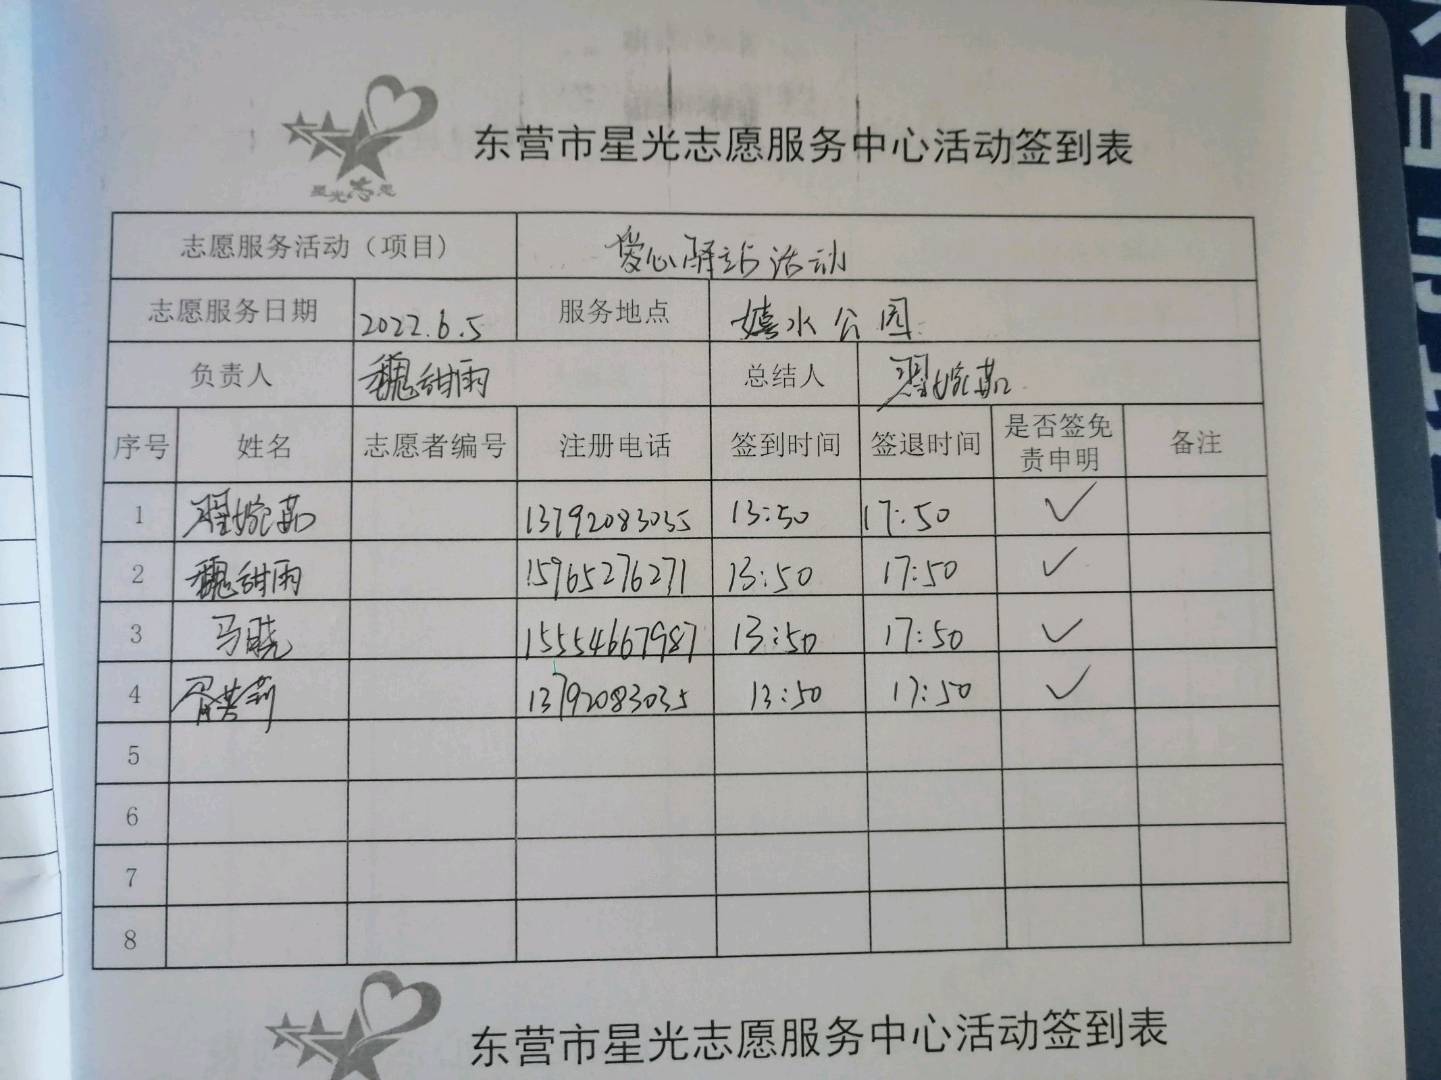 星光志愿
东营市星光志愿服务中心活动签到表
志愿服务活动（项目） 爱心驿站活动
志愿服务日期 2022.6.5 服务地点 嬉水公园
负责人 魏甜雨 总结人 翟婉茹
序号 姓名 志愿者编号 注册电话 签到时间 签退时间 是否签免责申明 备注
1 翟婉茹 13792083035 13:50 17:50 ✓
2 魏甜雨 15965276271 13:50 17:50 ✓
3 马晓 15554667987 13:50 17:50 ✓
4 胥英莉 13792083035 13:50 17:50 ✓
5
6
7
8
东营市星光志愿服务中心活动签到表